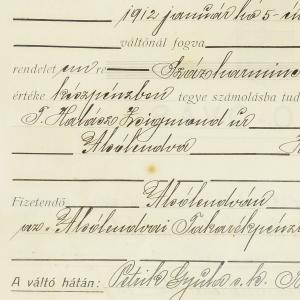 1912 január hó 5-é
váltónál fogva
rendelet em re Százharminc
értéke készpénzben tegye számolásba tud
T. Halász Zsigmond úr
Alsólendva
Fizetendő Alsólendván
az Alsólendvai Takarékpénz
A váltó hátán: Petrik Gyula s. k.